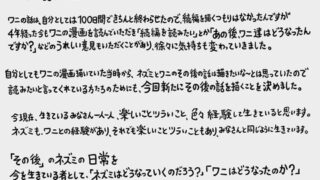 ワニの話は、自分としては100日間できちんと終わらせたので、続編を描くつもりはなかったんですが
4年経った今もワニの漫画を読んでいただき「続編を読みたい」とか「あの後ワニ達はどうなったん
ですか?」などのうれしい意見をいただくことがあり、徐々に気持ちも変わっていきました。
自分としてもワニの漫画描いていた当時から、ネズミとワニのその後の話は描きたいな〜とは思っていたので
読みたいと言ってくれている方たちのためにも、今回新たにその後の話を描くことを決めました。
今現在、生きているみなさん一人一人、楽しいことツラいこと、色々経験して生きていると思います。
ネズミも、ワニとの経験があり、それでも楽しいことツラいこともあり、みなさんと同じように生きています。
「その後」のネズミの日常を
今を生きている者として、「ネズミはどうなっていくのだろう?」「ワニはどうなったのか?」